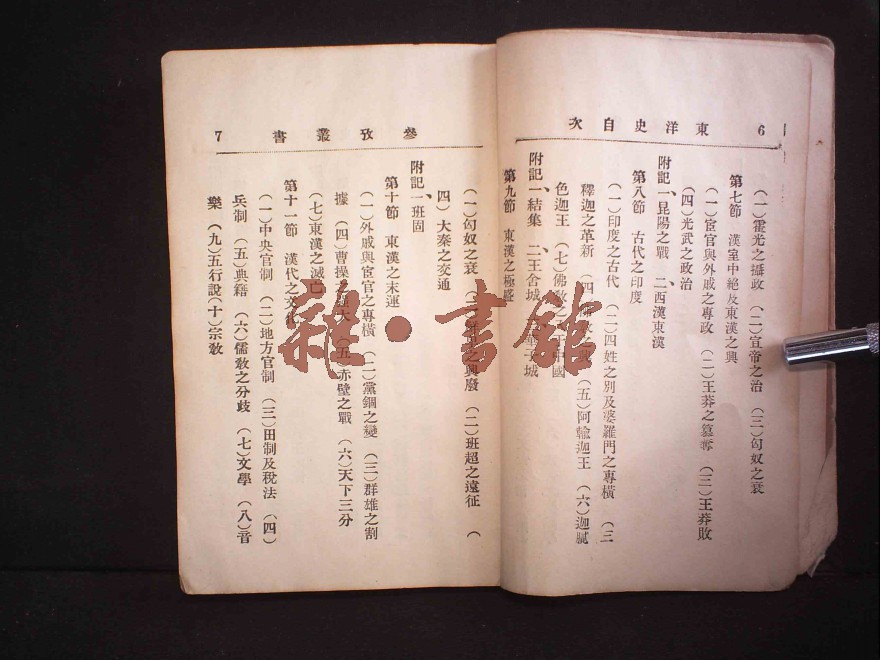 東洋史自次 6
(一)霍光之攝政 (二)宣帝之治 (三)匈奴之衰
第七節 漢室中絕及東漢之興
(一)宦官與外戚之專政 (二)王莽之篡奪 (三)王莽敗
(四)光武之政治
附記一、昆陽之戰 二、西漢東漢
第八節 古代之印度
(一)印度之古代 (二)四姓之別及婆羅門之專橫 (三
釋迦之革新 (四) (五)阿輸迦王 (六)迦膩
色迦王 (七)佛教 中國
附記一、結集 二、王舍城 華子城
第九節 東漢之極盛
參攷叢書 7
(一)匈奴之衰 之興廢 (二)班超之遠征 (
四)大秦之交通
附記一、班固
第十節 東漢之末運
(一)外戚與宦官之專橫 (二)黨錮之變 (三)群雄之割
據 (四)曹操之 大 (五)赤壁之戰 (六)天下三分
(七)東漢之滅亡
第十一節 漢代之文化
(一)中央官制 (二)地方官制 (三)田制及稅法 (四)
兵制 (五)典籍 (六)儒敎之分歧 (七)文學 (八)音
樂 (九)五行說 (十)宗敎
雜·書館